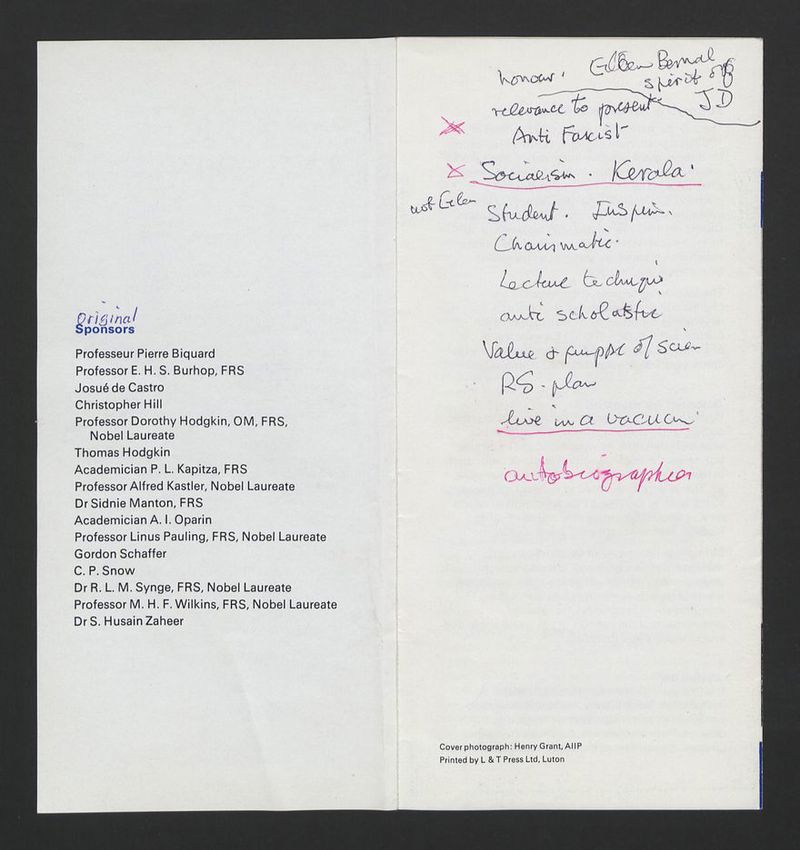 Original
Sponsors
Professeur Pierre Biquard
Professor E. H. S. Burhop, FRS
Josué de Castro
Christopher Hill
Professor Dorothy Hodgkin, OM, FRS,
Nobel Laureate
Thomas Hodgkin
Academician P. L. Kapitza, FRS
Professor Alfred Kastler, Nobel Laureate
Dr Sidnie Manton, FRS
Academician A. I. Oparin
Professor Linus Pauling, FRS, Nobel Laureate
Gordon Schaffer
C. P. Snow
Dr R. L. M. Synge, FRS, Nobel Laureate
Professor M. H. F. Wilkins, FRS, Nobel Laureate
Dr S. Husain Zaheer
honour. Eileen Bernal
spirit of
JD
relevance to present
Anti Fascist
Socialism. Kerala.
not Eileen
Student.
Charismatic.
Lecture technique
anti scholastic
Value & purpose of scien
RS. plan
live in a vacuum
autobiographies
Cover photograph: Henry Grant, AIIP
Printed by L & T Press Ltd, Luton